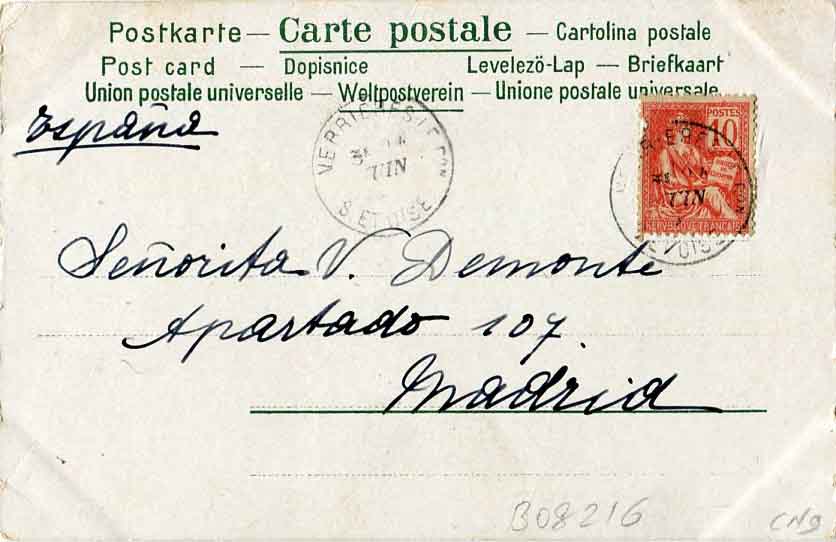 Postkarte — Carte postale — Cartolina postale
Post card — Dopisnice Levelezö-Lap — Briefkaart
Union postale universelle — Weltpostverein — Unione postale universale
España
VERRIERES-LE-BON
JUIN
S. ET OISE
POSTES
10
REPUBLIQUE FRANÇAISE
Señorita V. Demonte
Apartado 107.
Madrid
B08216
CN9